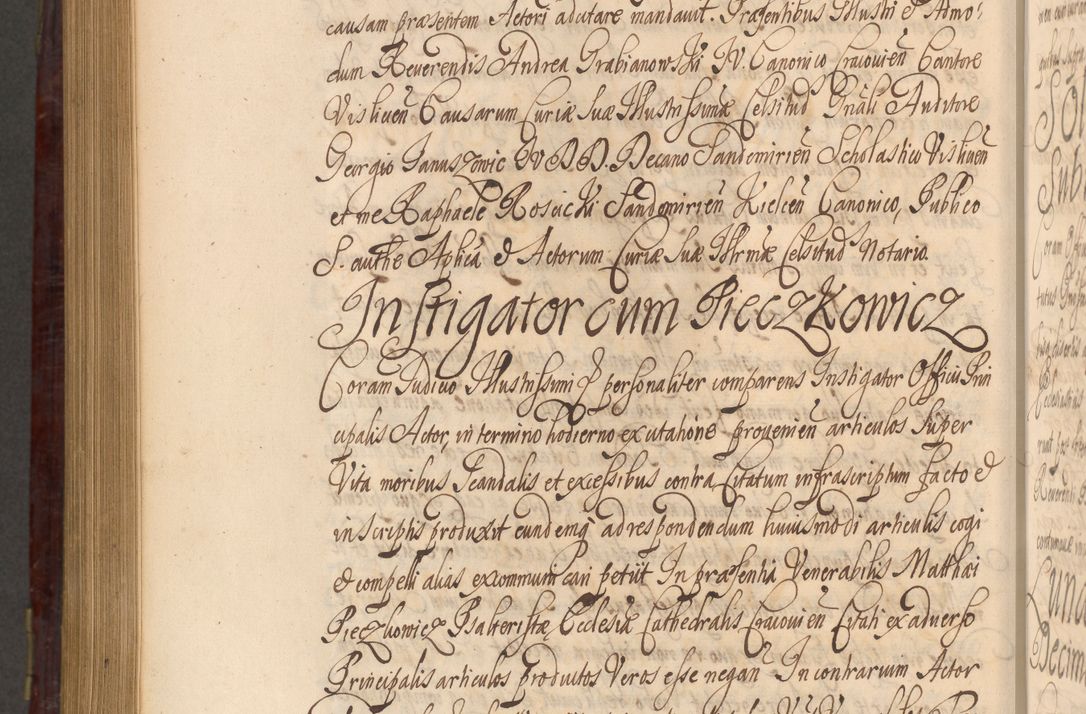 causam præsentem Actori adcitare mandavit. Præsentibus Illustri et Admo:
dum Reverendis Andrea Grabianowski IV. Canonico Cracovień Cantore
Visliceń Causarum Curiæ suæ Illustrissimæ Celsitud Gnāli Auditore
Georgio Januszowic IVDD. Decano Sandomirień Scholastico Visliceń
et me Raphaele Rosicki Sandomirień Kielceń Canonico, Publico
S. authe Aplicā et Actorum Curiæ suæ Illrmæ Celsitud Notario
Instigator cum Pieczkowicz
Coram Judicio Illustrissimi et personaliter comparens Instigator Officii Prin
cipalis Actor, in termino hodierno ex citatione provenień articulos super
Vita moribus Scandalis et excessibus contra Citatum infrascriptum facto et
in scriptis produxit eundemq adrespondendum huiusmodi articulis cogi
et compelli alias excommunicari petiit In præsentia Venerabilis Matthæi
Pieczkowicz Psalteristæ Ecclesiæ Cathedralis Cracovień Citati ex adverso
Principalis articulos productos Veros esse negan In contrarium Actor